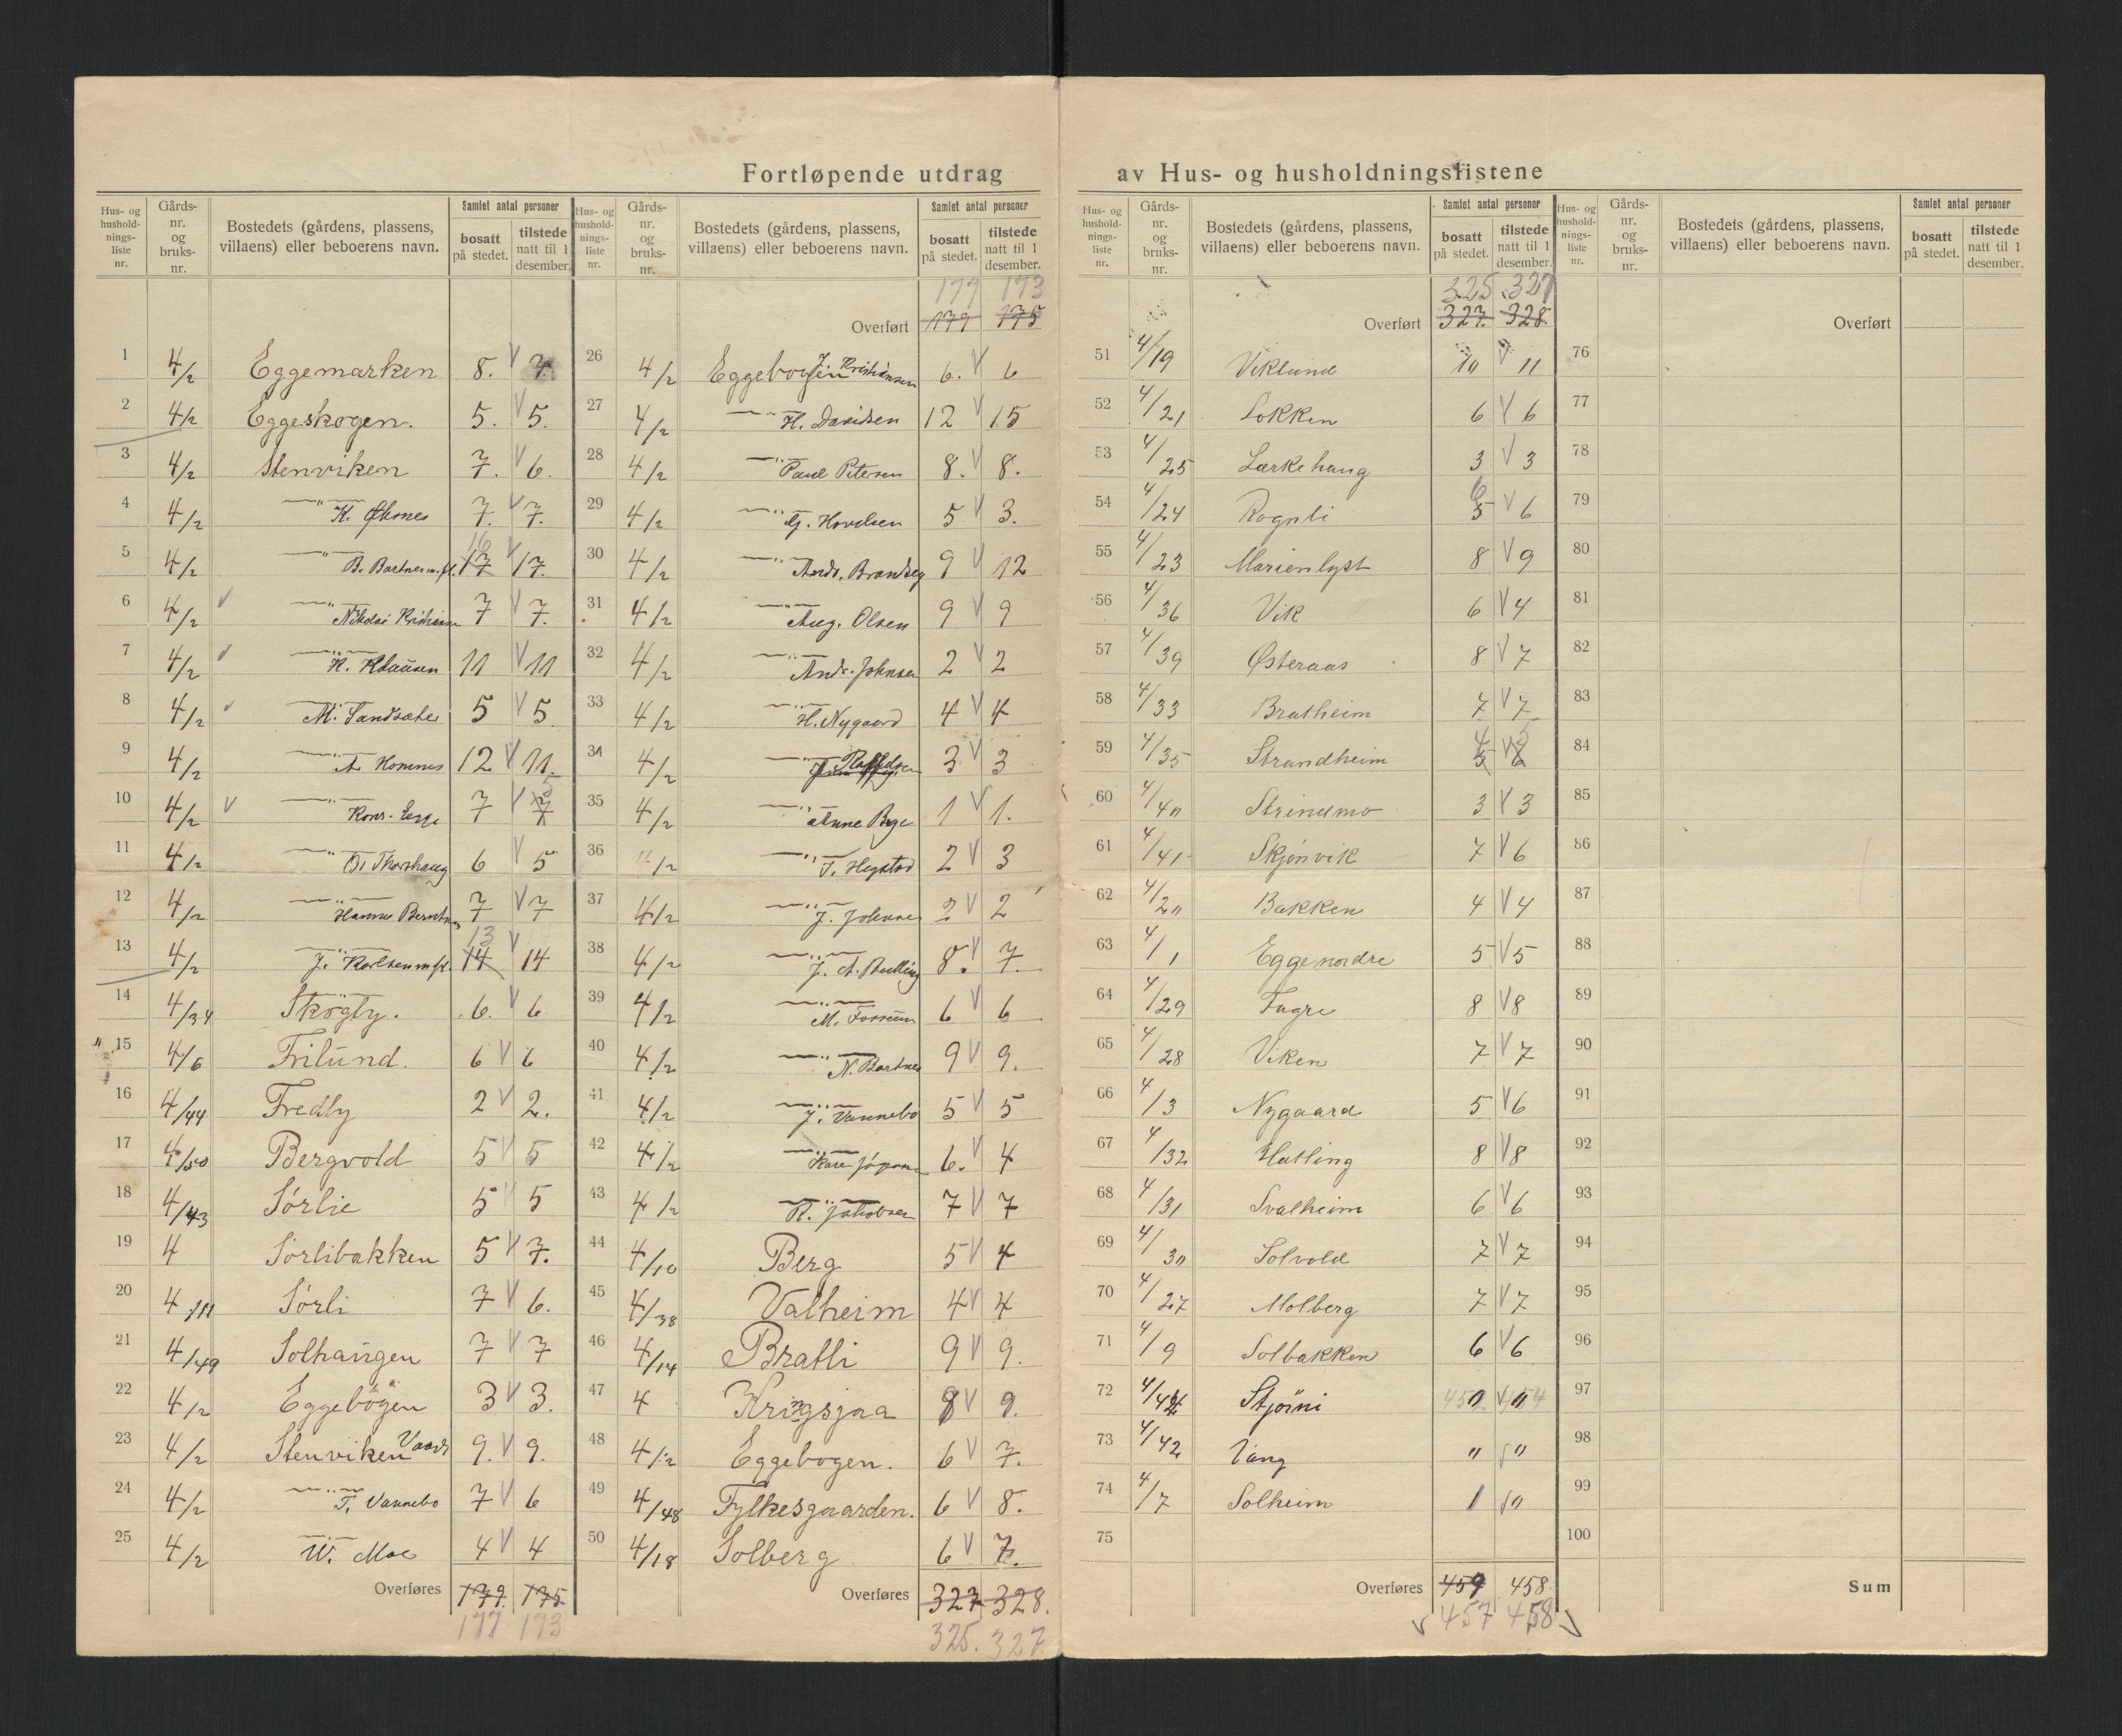 Fortløpende utdrag av Hus- og husholdningslistene
Hus- og hushold- nings- liste nr. | Gårds- nr. og bruks- nr. | Bostedets (gårdens, plassens, villaens) eller beboerens navn. | Samlet antal personer | bosatt på stedet. | tilstede natt til 1 desember.
1 4/2 Eggemarken 8. V 7.
2 4/2 Eggeskogen. 5. V 5.
3 4/2 Stenviken 7. V 6.
4 4/2 —"— K. 7. V 7.
5 4/2 —"— B. Bartnes m.fl. 16 17 V 17.
6 4/2 V —"— Nikolai Kristiansen 7 V 7.
7 4/2 V —"— K. Klausen 11 V 11
8 4/2 V —"— M. Sandsæter 5 V 5.
9 4/2 —"— A. Homnes 12 V 11.
10 4/2 V —"— Konr. Egge 7 V 7
11 4/2 —"— O. Thorshaug 6 V 5
12 4/2 —"— Hanna Berntsen 7 V 7
13 4/2 —"— J. Karlsen m.fl. 13 14 V 14
14 4/34 Skogly. 6. V 6
15 4/6 Frilund. 6 V 6
16 4/44 Fredly 2 V 2.
17 4/50 Bergvold 5 V 5
18 4/43 Sørlie 5 V 5
19 4 Sørlibakken 5 V 7.
20 4/11 Sørli 7 V 6.
21 4/49 Solhaugen 7 V 7
22 4/2 Eggebogen 3 V 3.
23 4/2 Stenviken 9. V 9.
24 4/2 —"— T. Vannebo 7 V 6
25 4/2 —"— W. Moe 4 V 4
Overføres 179. 175.
177 173
Hus- og hushold- nings- liste nr. | Gårds- nr. og bruks- nr. | Bostedets (gårdens, plassens, villaens) eller beboerens navn. | Samlet antal personer | bosatt på stedet. | tilstede natt til 1 desember.
177 173
Overført 179 175
26 4/2 Eggebogen J. Kristiansen 6. V 6
27 4/2 —"— H. Davidsen 12 V 15
28 4/2 —"— Paul Petersen 8. V 8.
29 4/2 —"— G. Hovelsen 5 V 3.
30 4/2 —"— Andr. Brandseg 9 V 12
31 4/2 —"— Aug. Olsen 9 V 9
32 4/2 —"— Andr. Johnsen 2 V 2
33 4/2 —"— H. Nygaard 4 V 4
34 4/2 —"— 3 V 3
35 4/2 —"— Anne Bye 1 V 1.
36 4/2 —"— T. Hegstad 2 V 3
37 4/2 —"— J. Johnsen 2 V 2
38 4/2 —"— J. A. Bulling 8. V 7.
39 4/2 —"— M. Fossum 6 V 6
40 4/2 —"— N. Bartnes 9 V 9.
41 4/2 —"— J. Vannebo 5 V 5
42 4/2 —"— 6. V 4
43 4/2 —"— R. Jakobsen 7 V 7
44 4/10 Berg 5 V 4
45 4/38 Valheim 4 V 4
46 4/14 Bratli 9 V 9.
47 4 Kringsjaa 8 V 9.
48 4/2 Eggebogen. 6 V 7.
49 4/48 Fylkesgaarden. 6 V 8.
50 4/18 Solberg 6 V 7.
Overføres 327 328.
325. 327.
Hus- og hushold- nings- liste nr. | Gårds- nr. og bruks- nr. | Bostedets (gårdens, plassens, villaens) eller beboerens navn. | Samlet antal personer | bosatt på stedet. | tilstede natt til 1 desember.
325 327
Overført 327. 328.
51 4/19 Viklund 10 V 11
52 4/21 Løkken 6 V 6
53 4/25 Lærkehaug 3 V 3
54 4/24 Rognli 6 5 V 6
55 4/23 Marienlyst 8 V 9
56 4/36 Vik 6 V 4
57 4/39 Østeraas 8 V 7
58 4/33 Bratheim 7 V 7
59 4/35 Strandheim 4 5 V 5
60 4/40 Strindmo 3 V 3
61 4/41 Skjønvik 7 V 6
62 4/20 Bakken 4 V 4
63 4/1 Egge nordre 5 V 5
64 4/29 Fagre 8 V 8
65 4/28 Viken 7 V 7
66 4/3 Nygaard 5 V 6
67 4/32 Hatling 8 V 8
68 4/31 Svalheim 6 V 6
69 4/30 Solvold 7 V 7
70 4/27 Molberg 7 V 7
71 4/9 Solbakken 6 V 6
72 4/44
73 4/42 Vang " V "
74 4/7 Solheim 1
75
Overføres 459 458
V 457 458 V
Hus- og hushold- nings- liste nr. | Gårds- nr. og bruks- nr. | Bostedets (gårdens, plassens, villaens) eller beboerens navn. | Samlet antal personer | bosatt på stedet. | tilstede natt til 1 desember.
Overført
76
77
78
79
80
81
82
83
84
85
86
87
88
89
90
91
92
93
94
95
96
97
98
99
100
Sum